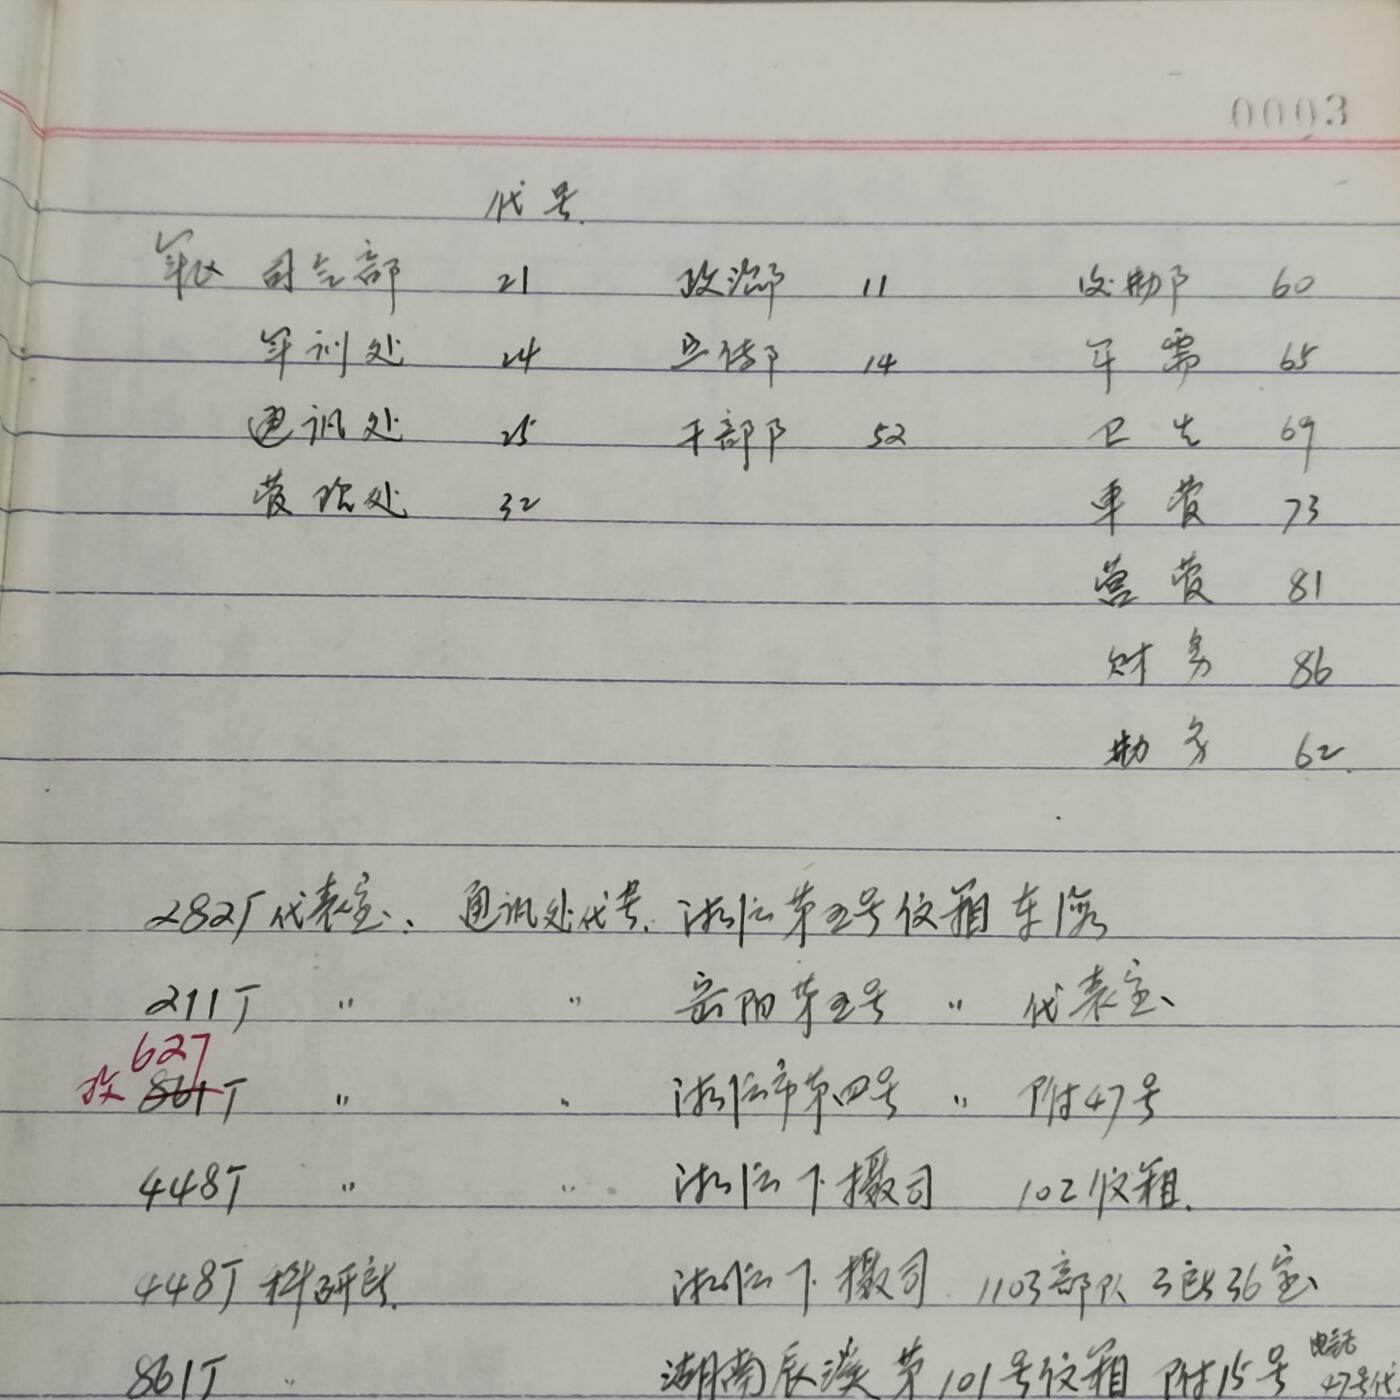 0003
代号.
军区 司令部 21 政治部 11 后勤部 60
军训处 24 宣传部 14 军需 65
通讯处 25 干部部 52 卫生 69
管理处 32 车管 73
营管 81
财务 86
勤务 62.
282厂代表室. 通讯处代号. 湘江第五号信箱
211厂 〃 〃 岳阳第五号 〃 代表室
627
改 861厂 〃 〃 湘江市第四号 〃 附47号
448厂 〃 〃 湘江下摄司 102信箱.
448厂科研所. 湘江下摄司 1103部队 3所36室
861厂 〃 湖南辰溪第101号信箱 附15号 电话